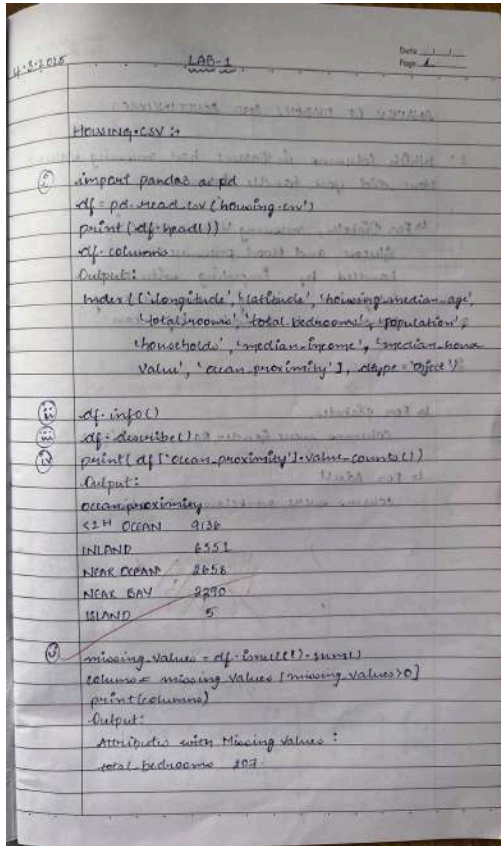 4.3.2025
LAB-1
Date __/__/__
Page 1
HOUSING.CSV :→
(i) import pandas as pd
df = pd.read_csv('housing.csv')
print(df.head())
df.columns
Output:
Index(['longitude', 'latitude', 'housing_median_age',
'total_rooms', 'total_bedrooms', 'population',
'households', 'median_income', 'median_house
value', 'ocean_proximity'], dtype='object')
(ii) df.info()
(iii) df.describe()
(iv) print(df['ocean_proximity'].value_counts())
Output:
ocean_proximity
<1H OCEAN 9136
INLAND 6551
NEAR OCEAN 2658
NEAR BAY 2290
ISLAND 5
(v) missing_values = df.isnull().sum()
columns = missing_values[missing_values>0]
print(columns)
Output:
Attributes with Missing Values :
total_bedrooms 207